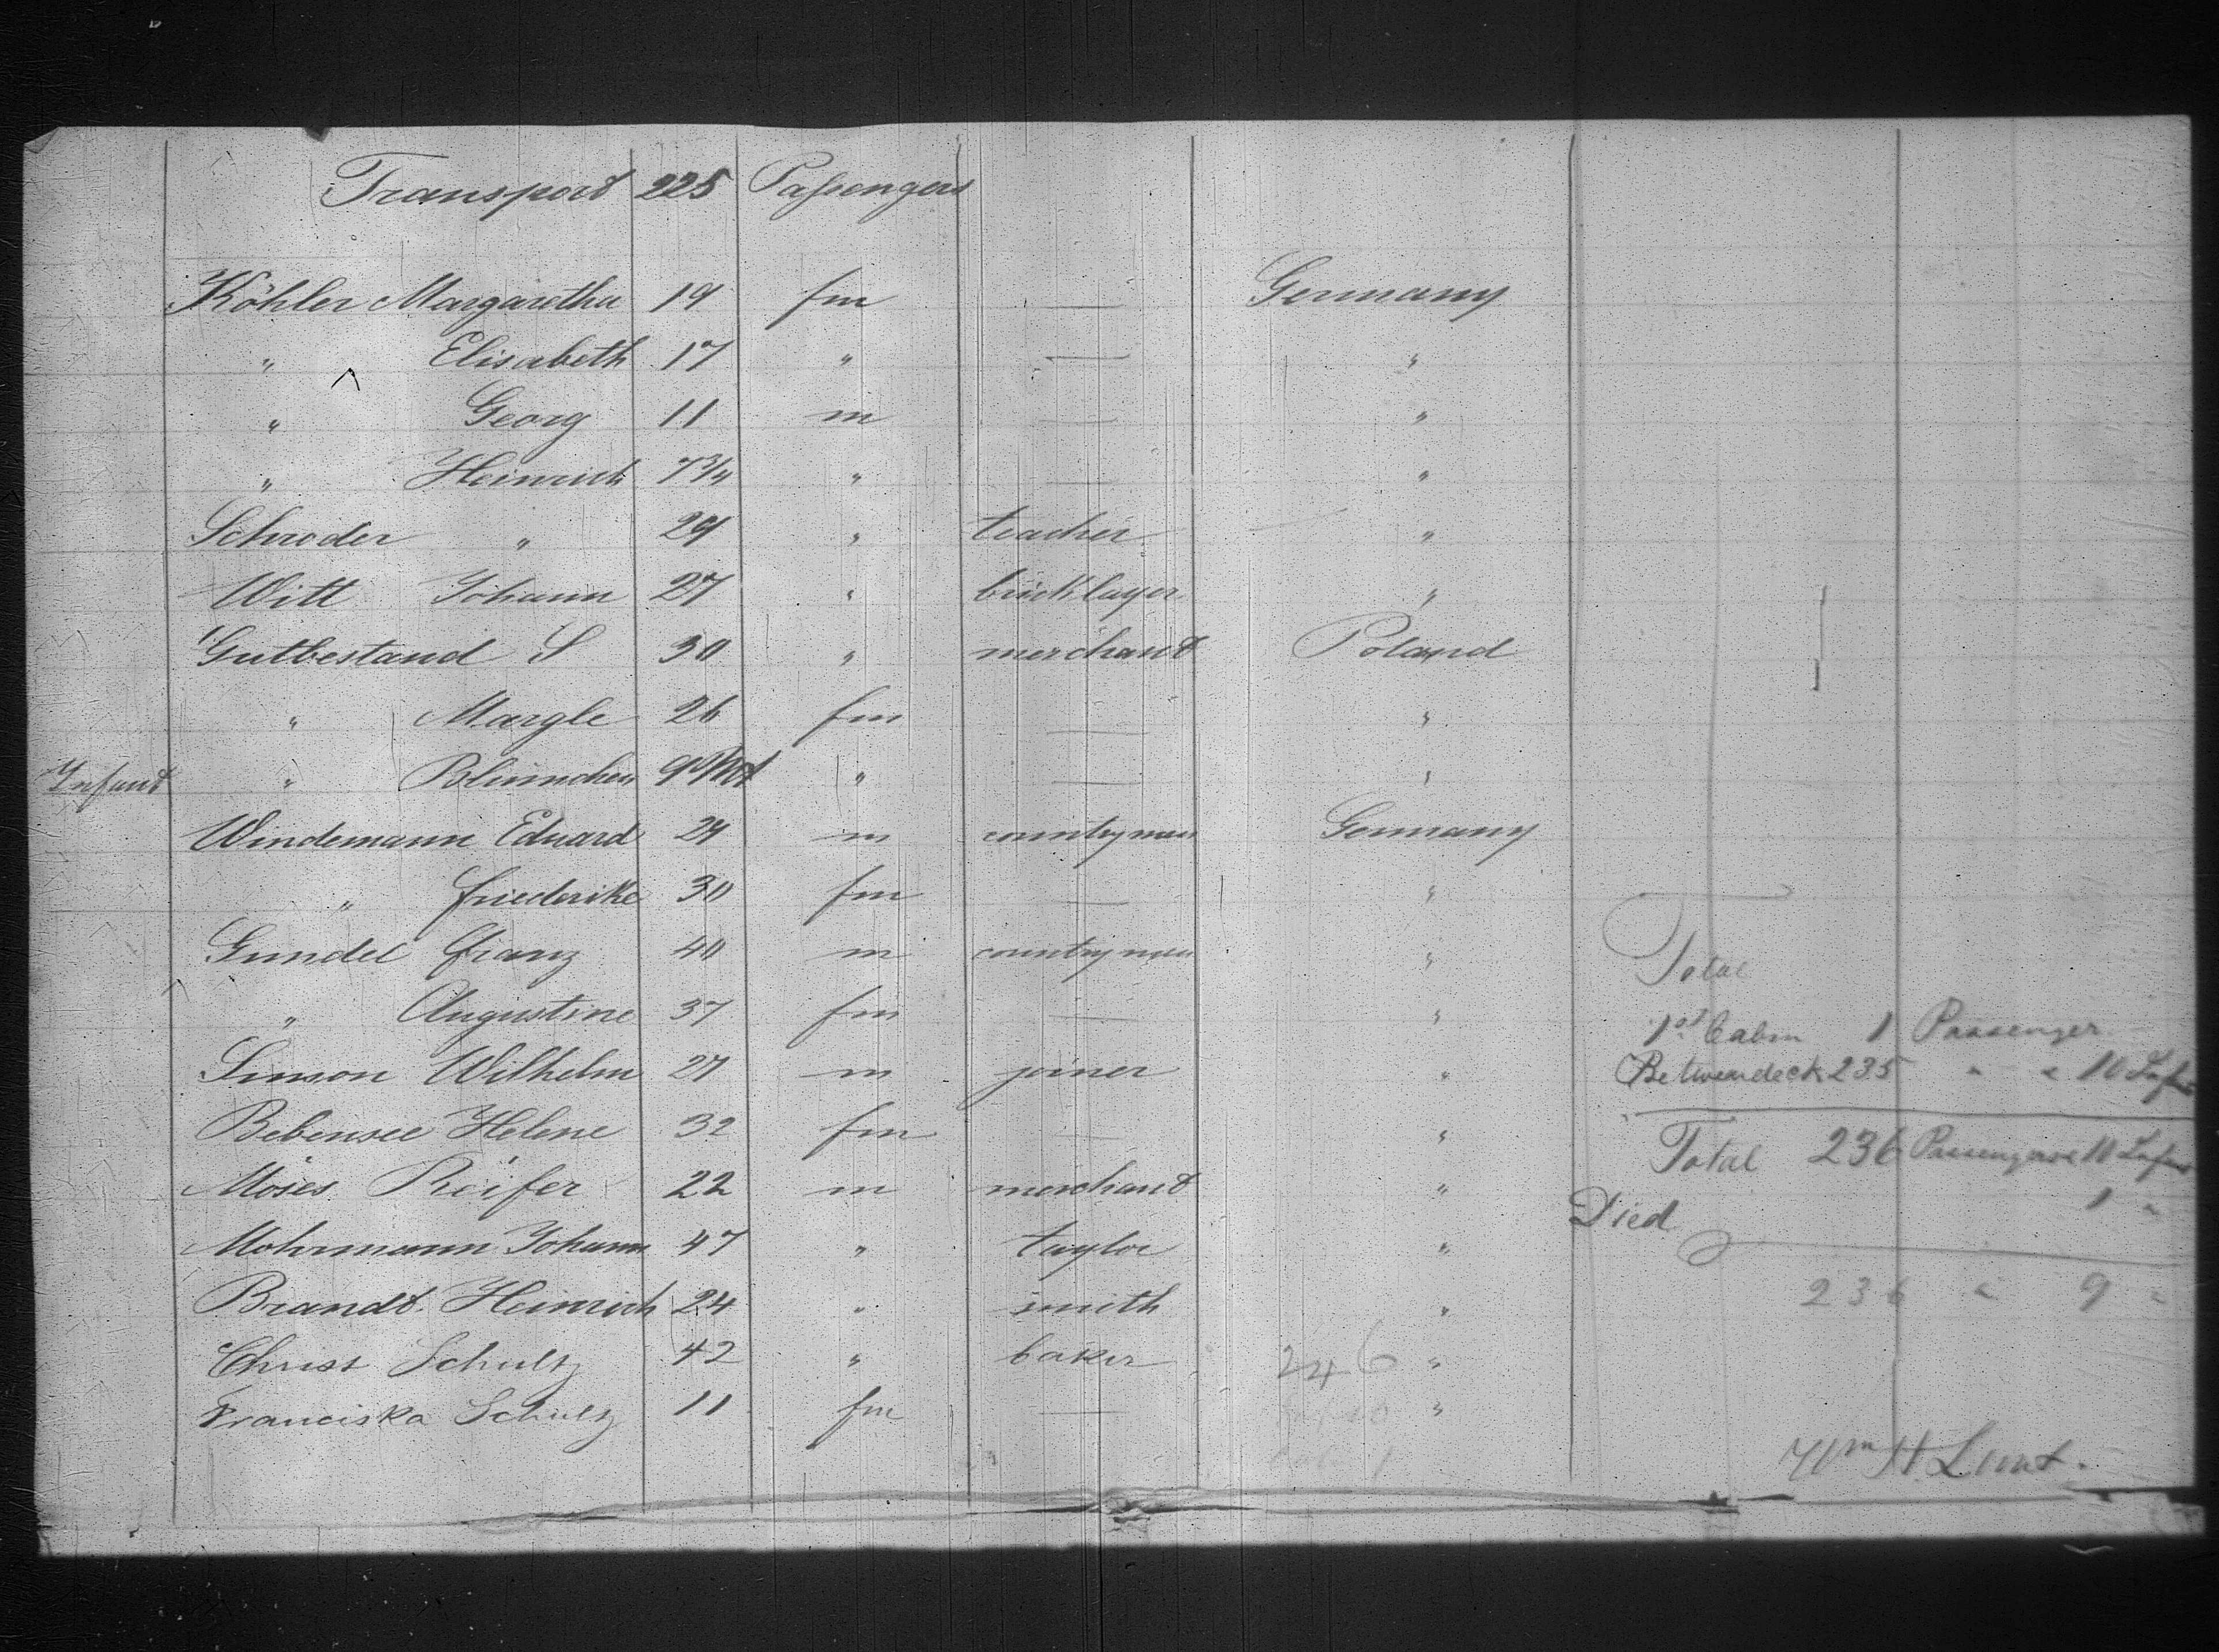 Transport 225 Passengers
Köhler Margaretha 19 fm — Germany
" Elisabeth 17 " — "
" Georg 11 m — "
" Heinrich 7 3/4 " — "
Schroder " 29 " teacher "
Witt Johann 27 " bricklayer "
Gutbestand S 30 " merchant Poland
" Margle 26 fm — "
Infant " Blümchen 9 " — "
Windemann Eduard 29 m countryman Germany
" Friederike 30 fm — "
Gundel Franz 40 m countryman "
" Augustine 37 fm — "
Simson Wilhelm 27 m joiner "
Bebensee Helene 32 fm — "
Moses Reifer 22 m merchant "
Mohrmann Johann 47 " taylor "
Brandt Heinrich 24 " smith "
Christ Schultz 42 " baker "
Franciska Schultz 11 fm — "
246
Total
1st Cabin 1 Passenger
Betweendeck 235 " " 10 Infts
Total 236 Passengers & 10 Infts
Died 1 "
236 " 9 "
Wm H Lunt.